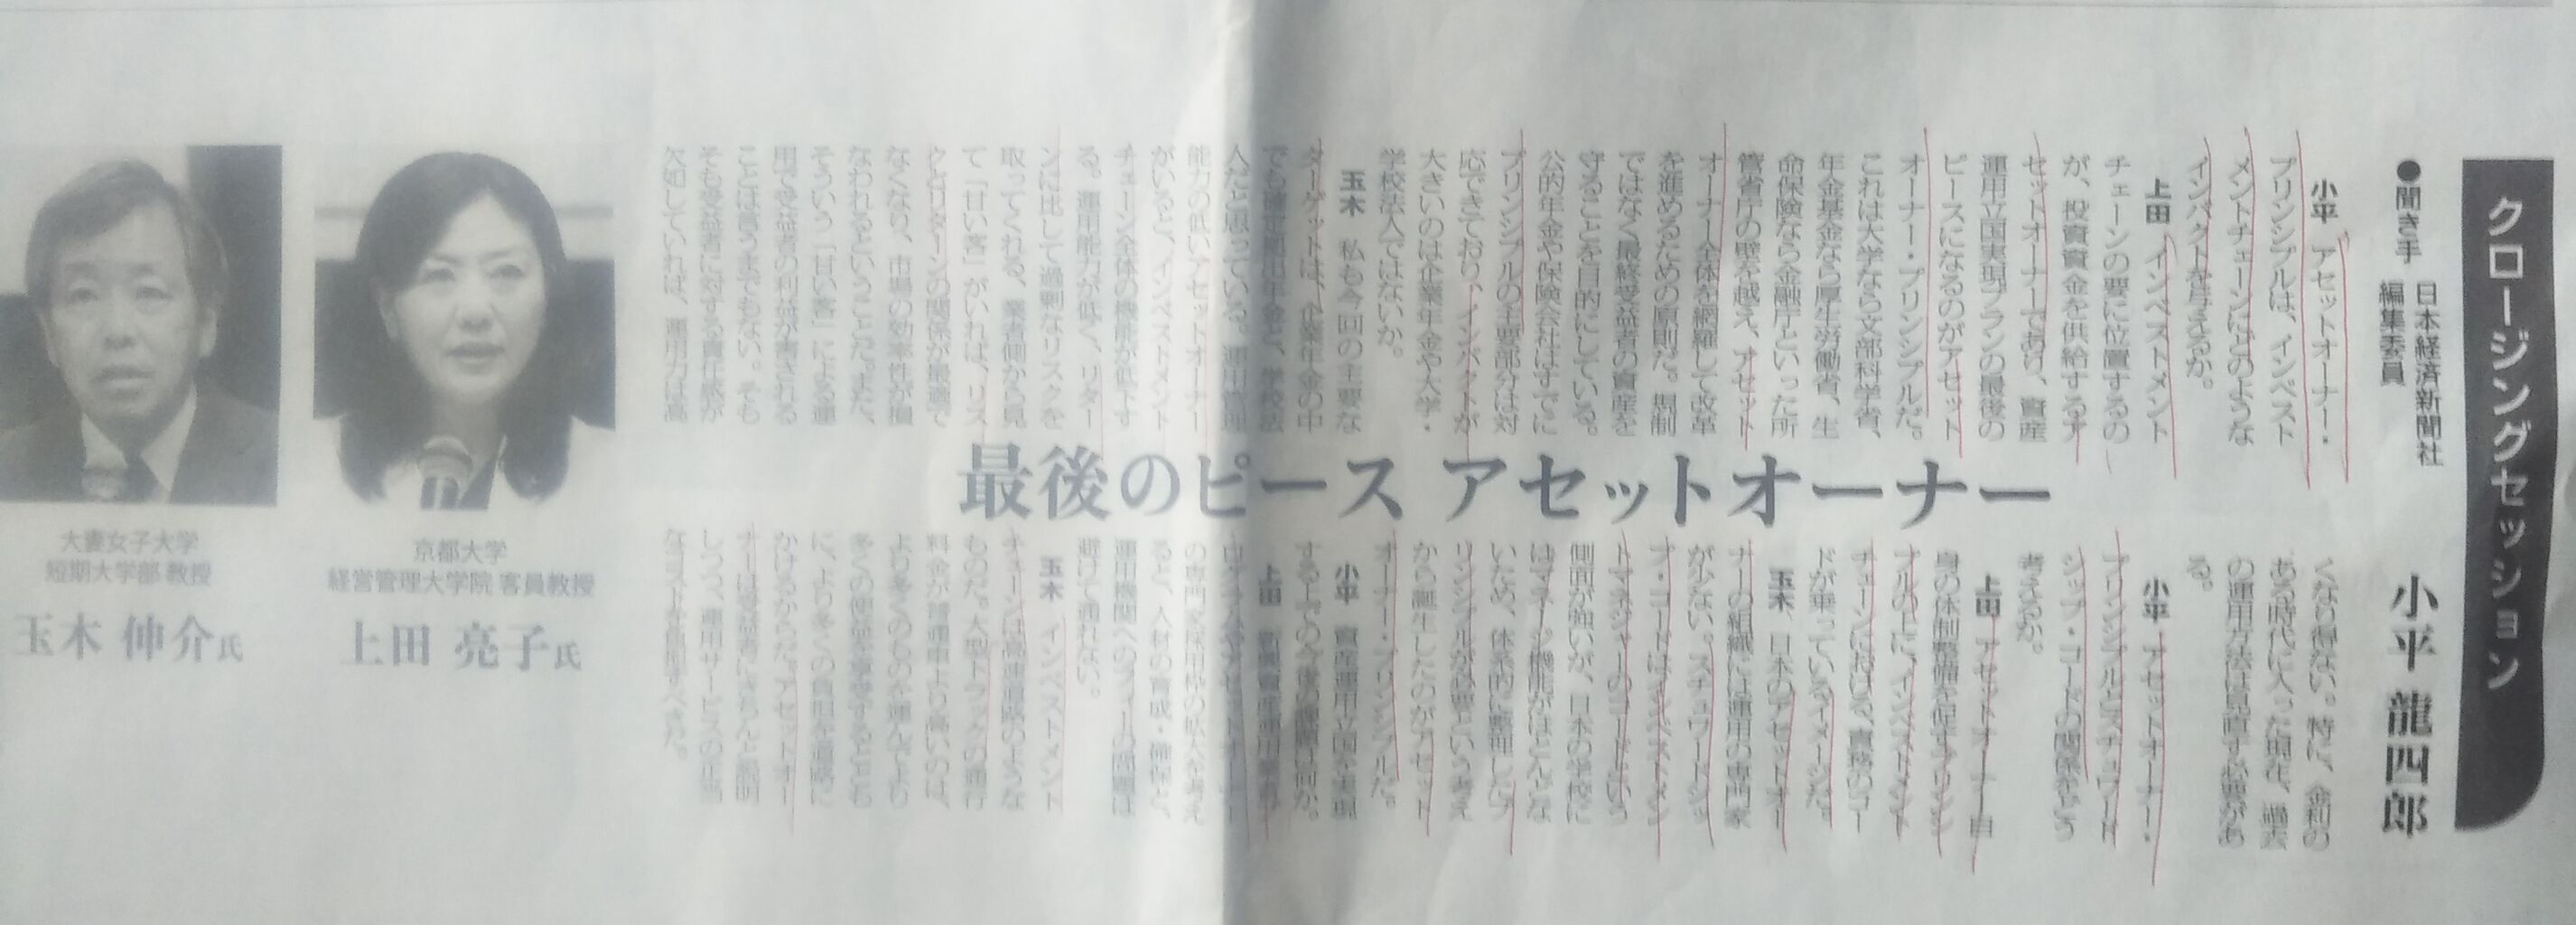 クロージングセッション
●聞き手 日本経済新聞社
編集委員
小平 龍四郎
最後のピース アセットオーナー
小平 アセットオーナー・
プリンシプルは、インベスト
メントチェーンにどのような
インパクトを与えるか。
上田 インベストメント
チェーンの要に位置するの
が、投資資金を供給するア
セットオーナーであり、資産
運用立国実現プランの最後の
ピースになるのがアセット
オーナー・プリンシプルだ。
これは大学なら文部科学省、
年金基金なら厚生労働省、生
命保険なら金融庁といった所
管省庁の壁を越え、アセット
オーナー全体を網羅して改革
を進めるための原則だ。規制
ではなく最終受益者の資産を
守ることを目的にしている。
公的年金や保険会社はすでに
プリンシプルの主要部分は対
応できており、インパクトが
大きいのは企業年金や大学・
学校法人ではないか。
玉木 私も今回の主要な
ターゲットは、企業年金の中
でも確定給付年金と、学校法
人だと思っている。運用管理
能力の低いアセットオーナー
がいると、インベストメント
チェーン全体の機能が低下す
る。運用能力が低く、リター
ンに比して過剰なリスクを
取ってくれる、業者側から見
て「甘い客」がいれば、リス
クとリターンの関係が最適で
なくなり、市場の効率性が損
なわれるということだ。また、
そういう「甘い客」による運
用で受益者の利益が害される
ことは言うまでもない。そも
そも受益者に対する責任感が
欠如していれば、運用力は高
くなり得ない。特に、金利の
ある時代に入った現在、過去
の運用方法は見直す必要があ
る。
小平 アセットオーナー・
プリンシプルとスチュワード
シップ・コードの関係をどう
考えるか。
上田 アセットオーナー自
身の体制整備を促すプリンシ
プルの上に、インベストメント
チェーンにおける責務のコー
ドが乗っているイメージだ。
玉木 日本のアセットオー
ナーの組織には運用の専門家
が少ない。スチュワードシッ
プ・コードはインベストメン
トマネジャーのコードという
側面が強いが、日本の学校に
はマネージ機能がほとんどな
いため、体系的に整理したプ
リンシプルが必要という考え
から誕生したのがアセット
オーナー・プリンシプルだ。
小平 資産運用立国を実現
する上での今後の課題は何か。
上田 新興資産運用業者
の専門家採用枠の拡大を考え
ると、人材の育成・確保と、
運用機関へのフィーの問題は
避けて通れない。
玉木 インベストメント
チェーンは高速道路のような
ものだ。大型トラックの通行
料金が普通車より高いのは、
より多くのものを運んでより
多くの便益を享受するととも
に、より多くの負担を道路に
かけるからだ。アセットオー
ナーは受益者にきちんと説明
しつつ、運用サービスの正当
なコストを負担すべきだ。
京都大学
経営管理大学院 客員教授
上田 亮子氏
大妻女子大学
短期大学部 教授
玉木 伸介氏